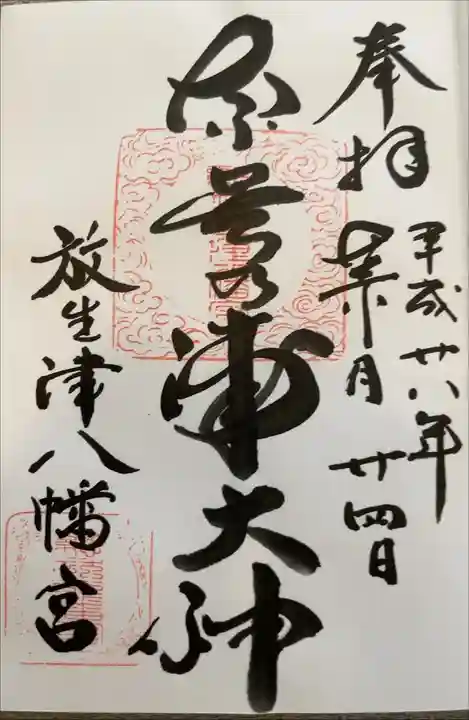 奉拝
平成廿八年
葉月廿四日
奈呉の浦大神
放生津八幡宮